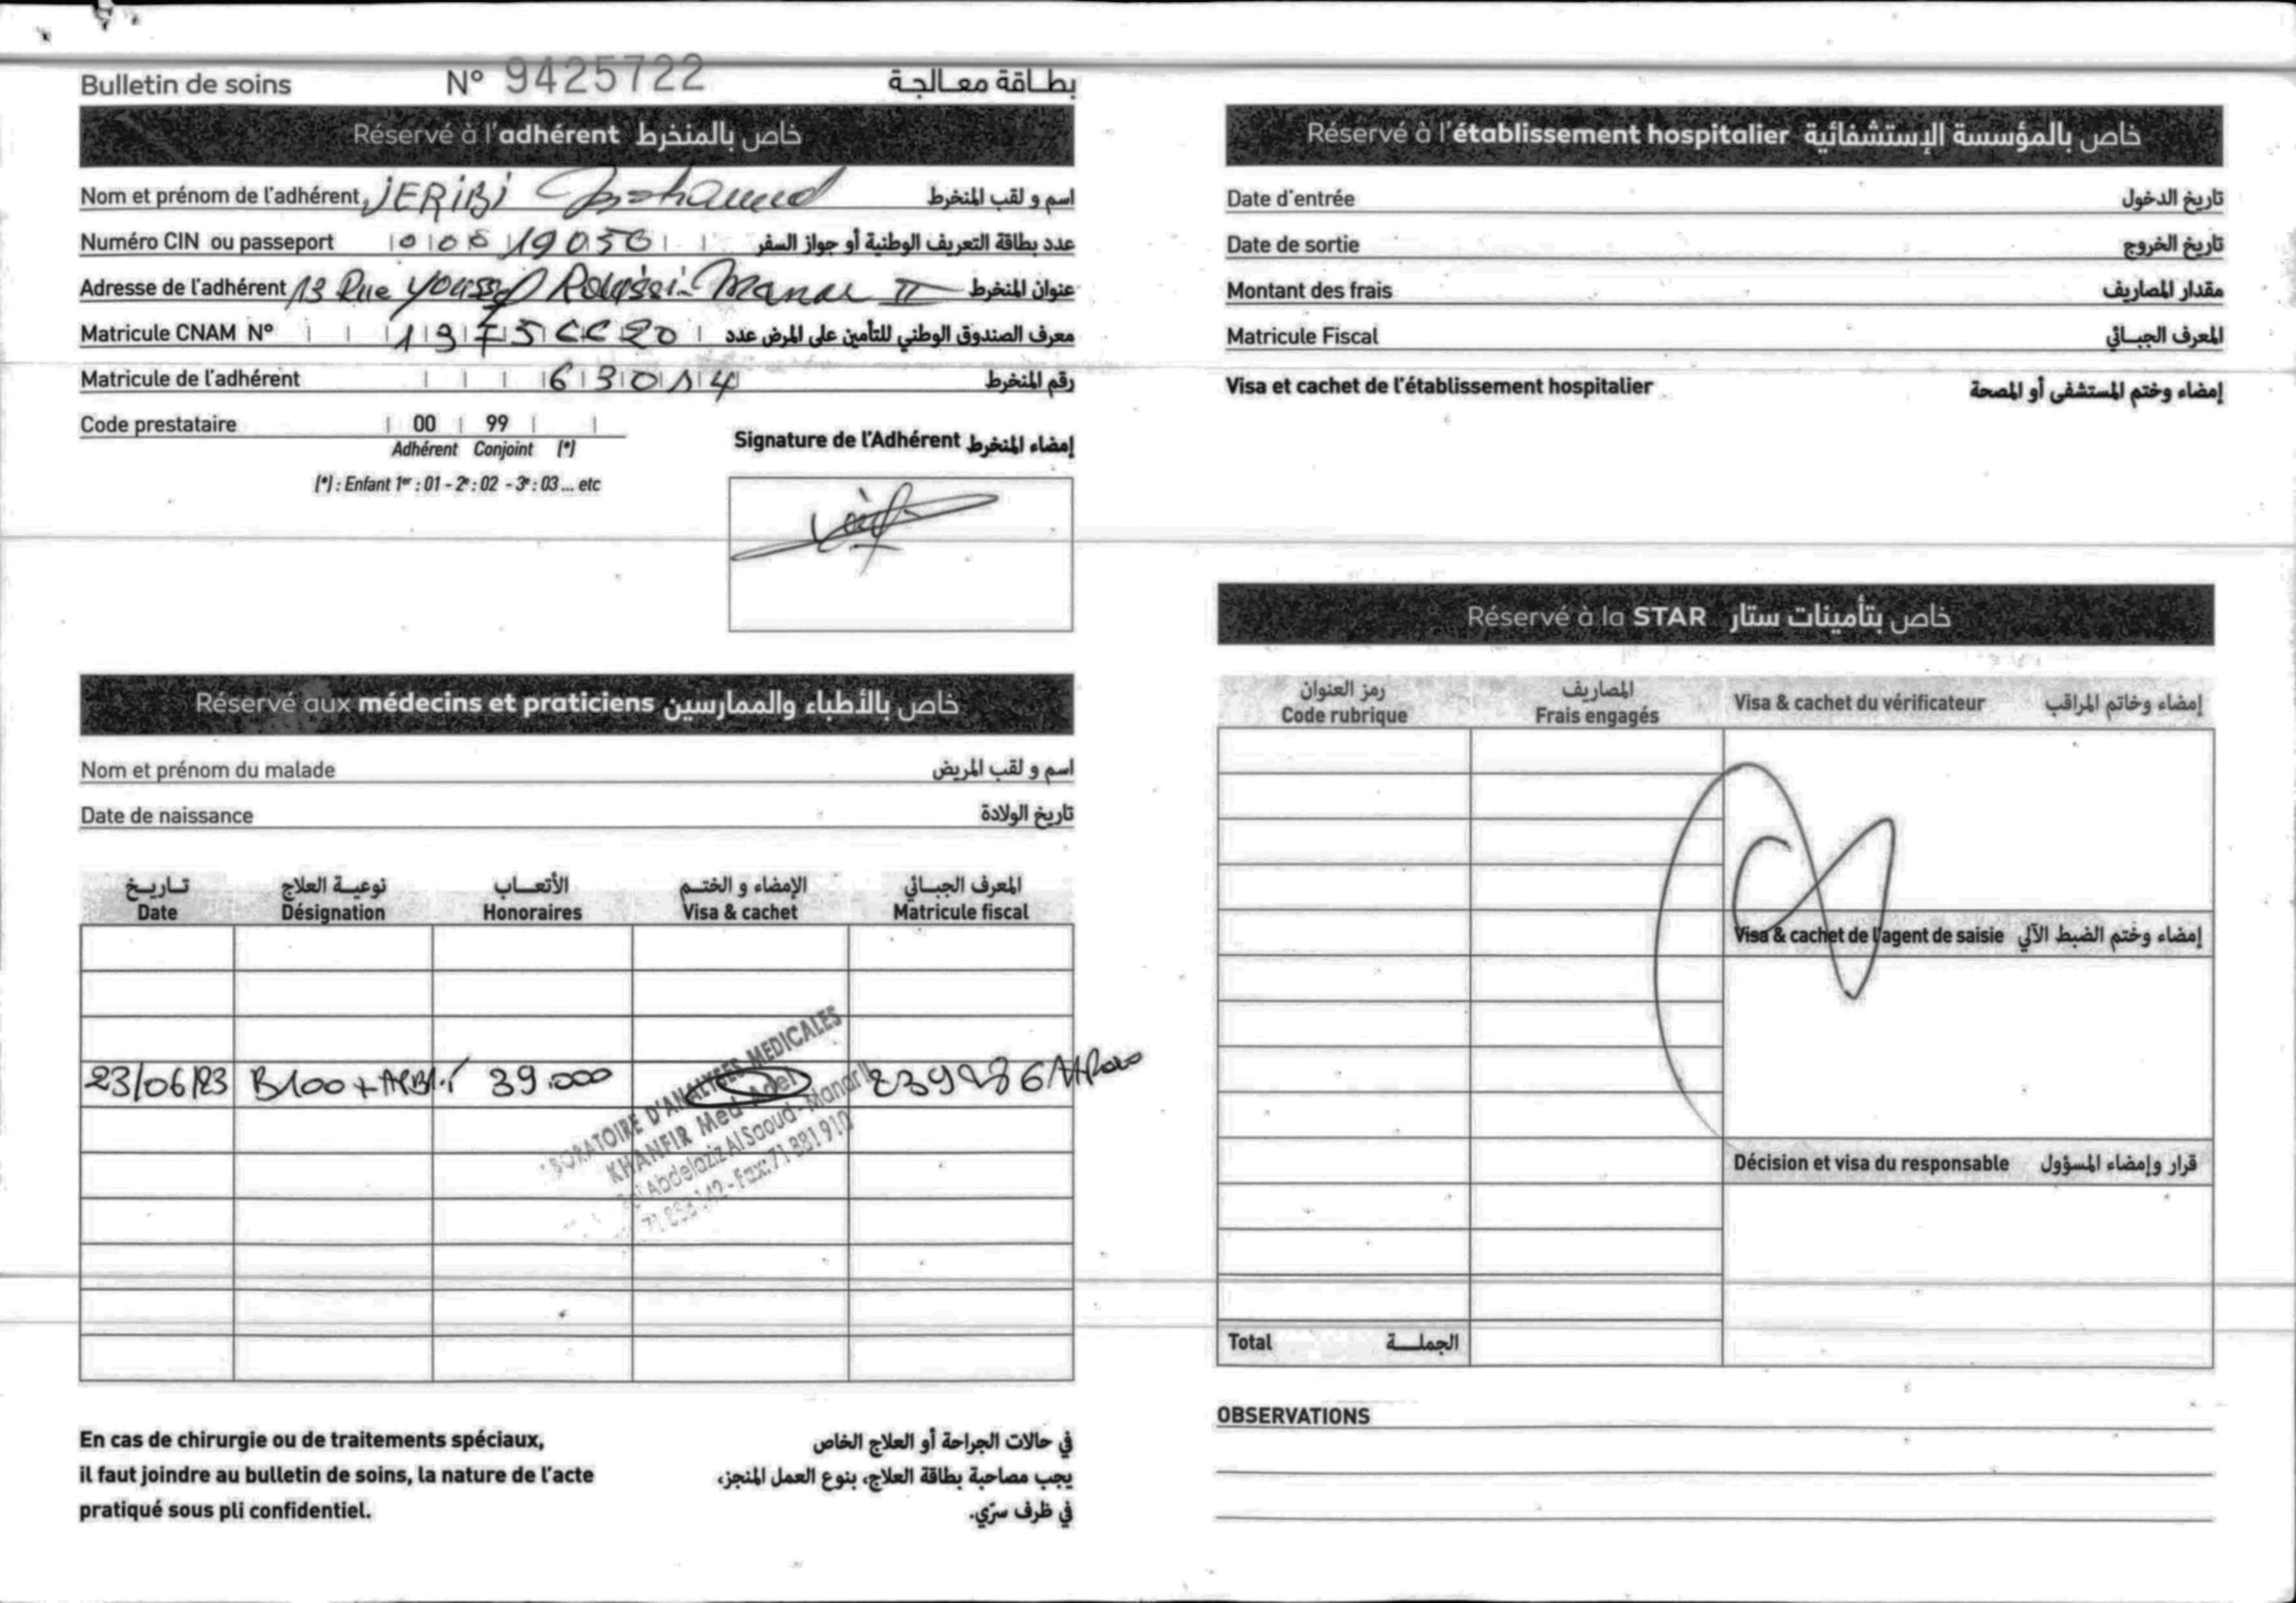 Bulletin de soins N° 9425722 بطاقة معالجة
Réservé à l'adhérent خاص بالمنخرط
Nom et prénom de l'adhérent JERiBi Mohamed اسم و لقب المنخرط
Numéro CIN ou passeport عدد بطاقة التعريف الوطنية أو جواز السفر
Adresse de l'adhérent 13 Rue Youssef Rouissi Manar II عنوان المنخرط
Matricule CNAM N° معرف الصندوق الوطني للتأمين على المرض عدد
Matricule de l'adhérent 63014 رقم المنخرط
Code prestataire 00 99
Adhérent Conjoint (*)
(*) : Enfant 1er : 01 - 2e : 02 - 3e : 03 ... etc
Signature de l'Adhérent إمضاء المنخرط
Réservé aux médecins et praticiens خاص بالأطباء والممارسين
Nom et prénom du malade اسم و لقب المريض
Date de naissance تاريخ الولادة
تاريخ نوعية العلاج الأتعاب الإمضاء و الختم المعرف الجبائي
Date Désignation Honoraires Visa & cachet Matricule fiscal
23/06/23 B100 + 39.000
LABORATOIRE D'ANALYSES MEDICALES
KHANFIR Med Adel
Abdelaziz Al Saoud - Manar II
Fax: 71 881 910
En cas de chirurgie ou de traitements spéciaux,
il faut joindre au bulletin de soins, la nature de l'acte
pratiqué sous pli confidentiel.
في حالات الجراحة أو العلاج الخاص
يجب مصاحبة بطاقة العلاج، بنوع العمل المنجز،
في ظرف سرّي.
Réservé à l'établissement hospitalier خاص بالمؤسسة الإستشفائية
Date d'entrée تاريخ الدخول
Date de sortie تاريخ الخروج
Montant des frais مقدار المصاريف
Matricule Fiscal المعرف الجبائي
Visa et cachet de l'établissement hospitalier إمضاء وختم المستشفى أو المصحة
Réservé à la STAR خاص بتأمينات ستار
رمز العنوان المصاريف
Code rubrique Frais engagés
Visa & cachet du vérificateur إمضاء وخاتم المراقب
Visa & cachet de l'agent de saisie إمضاء وختم الضبط الآلي
Décision et visa du responsable قرار وإمضاء المسؤول
Total الجملة
OBSERVATIONS